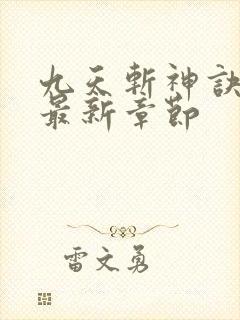 九天斬神訣
最新章節
雷文勇